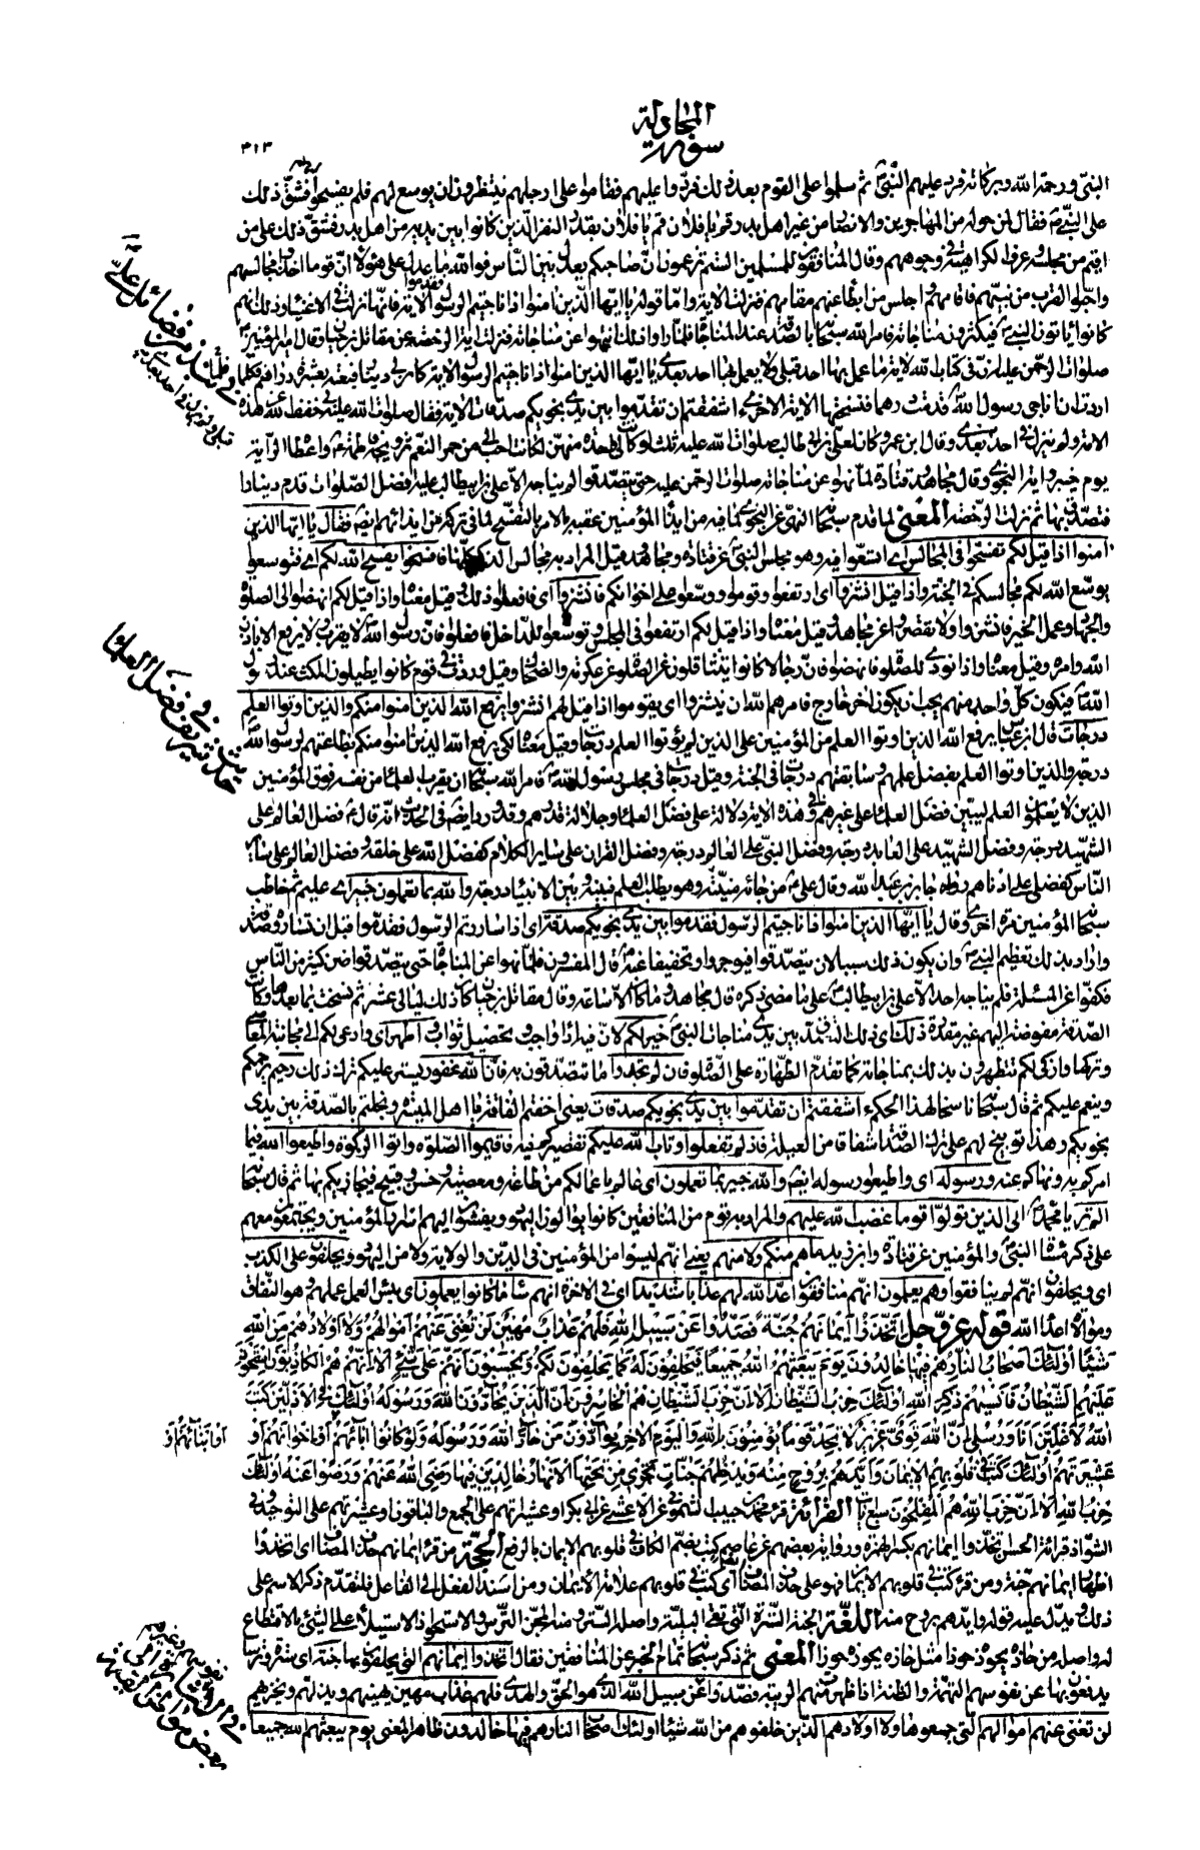 المجادلة
سورة
٣١٣
النبى ورحمة الله وبركاته فرد عليهم النبى ثم سلموا على القوم بعد ذلك فردوا عليهم فقاموا على ارجلهم ينتظرون ان يوسع لهم فلم يفسحوا فشق ذلك
على النبى فقال لمن حوله من المهاجرين والانصار من غير اهل بدر قم يا فلان قم يا فلان بقدر النفر الذين كانوا بين يديه من اهل بدر فشق ذلك على من
اقيم من مجلسه وعرف الكراهية فى وجوههم وقال المنافقون للمسلمين الستم تزعمون ان صاحبكم يعدل بين الناس فوالله ما عدل على هؤلاء ان قوما اخذوا مجالسهم
واحبوا القرب من نبيهم فاقامهم واجلس من ابطأ عنهم مقامهم فنزلت الاية واما قوله يا ايها الذين امنوا اذا ناجيتم الرسول الاية فانها نزلت فى الاغنياء وذلك انهم
كانوا ياتون النبى فيكثرون مناجاته فامر الله سبحانه بالصدقة عند المناجاة فلما راوا ذلك انتهوا عن مناجاته فنزلت اية الرخصة عن مقاتل بن حيان وقال امير المؤمنين
صلوات الرحمن عليه ان فى كتاب الله لاية ما عمل بها احد قبلى ولا يعمل بها احد بعدى يا ايها الذين امنوا اذا ناجيتم الرسول الاية كان لى دينار فبعته بعشرة دراهم فكلما
اردت ان اناجى رسول الله قدمت درهما فنسختها الاية الاخرى ءاشفقتم ان تقدموا بين يدى نجويكم صدقات الاية فقال صلوات الله عليه فبى خفف الله عن هذه
الامة ولم ينزل فى احد بعدى وقال ابن عمر كان لعلى بن ابى طالب صلوات الله عليه ثلث لو كان لى واحدة منهن لكانت احب الى من حمر النعم تزويجه فاطمة واعطاؤه الراية
يوم خيبر واية النجوى وقال مجاهد وقتادة لما نهوا عن مناجاته صلوات الرحمن عليه حتى يتصدقوا لم يناجه الا على بن ابيطالب عليه فضل الصلوات قدم دينارا
فتصدق بها ثم نزلت الرخصة المعنى لما قدم سبحانه النهى عن النجوى لما فيه من ايذاء المؤمنين عقبه بالامر بالتفسح لما فى تركه من ايذائهم ايضا فقال يا ايها الذين
امنوا اذا قيل لكم تفسحوا فى المجالس اى اتسعوا فيه وهو مجلس النبى عن قتادة ومجاهد وقيل المراد به مجالس الذكر كلها فافسحوا يفسح الله لكم اى فتوسعوا
يوسع الله لكم مجالسكم فى الجنة واذا قيل انشزوا اى ارتفعوا وقوموا ووسعوا على اخوانكم فانشزوا اى فافعلوا ذلك وقيل معناه واذا قيل لكم انهضوا الى الصلوة
والجهاد وعمل الخير فانشزوا ولا تقصروا عن مجاهد وقيل معناه واذا قيل لكم ارتفعوا فى المجلس وتوسعوا للداخل فافعلوا
الله وامره وقيل معناه واذا نودى للصلوة فانهضوا فان رجالا كانوا يتثاقلون عن الصلوة عن عكرمة والضحاك وقيل وردت فى قوم كانوا يطيلون المكث عند رسول
الله فيكون كل واحد منهم يحب ان يكون اخر خارج فامرهم الله ان ينشزوا اى يقوموا اذا قيل لهم انشزوا يرفع الله الذين امنوا منكم والذين اوتوا العلم
درجات قال ابن عباس يرفع الله الذين اوتوا العلم من المؤمنين على الذين لم يؤتوا العلم درجات وقيل معناه لكى يرفع الله الذين امنوا منكم بطاعتهم لرسول الله
درجة والذين اوتوا العلم بفضل علمهم وسابقتهم درجات فى الجنة وقيل درجات فى مجلس رسول الله فامر الله سبحانه ان يقرب العلماء من نفسه فوق المؤمنين
الذين لا يعلمون العلم ليبين فضل العلماء على غيرهم وفى هذه الاية دلالة على فضل العلماء وجلالة قدرهم وقد ورد ايضا فى الحديث انه قال فضل العالم على
الشهيد درجة وفضل الشهيد على العابد درجة وفضل النبى على العالم درجة وفضل القران على ساير الكلام كفضل الله على خلقه وفضل العالم على ساير
الناس كفضلى على ادناهم رواه جابر بن عبد الله وقال على من جائته منيته وهو يطلب العلم فبينه وبين الانبياء درجة والله بما تعملون خبير اى عليم ثم خاطب
سبحانه المؤمنين مرة اخرى وقال يا ايها الذين امنوا اذا ناجيتم الرسول فقدموا بين يدى نجويكم صدقة اى اذا ساررتم الرسول فقدموا قبل ان تساروه صدقة
واراد بذلك تعظيم النبى وان يكون ذلك سببا لان يتصدقوا فيوجروا وتخفيفا عنه قال المفسرون فلما نهوا عن المناجاة حتى يتصدقوا ضن كثير من الناس
فكفوا عن المسئلة فلم يناجه احد الا على بن ابيطالب على ما مضى ذكره قال مجاهد وما كان الا ساعة وقال مقاتل بن حيان كان ذلك ليالى عشر ثم نسخت بما بعدها وكانت
الصدقة مفوضة اليهم غير مقدرة ذلك اى ذلك التقديم بين يدى مناجات النبى خير لكم لان فيه اداء واجب وتحصيل ثواب واطهر اى وادعى لكم الى مجانبة المعاصى
وتركها وازكى لكم تتطهرون بذلك بمناجاته كما تقدم الطهارة على الصلوة فان لم تجدوا ما تتصدقون به فان الله غفور يستر عليكم ترك ذلك رحيم يرحمكم
وينعم عليكم ثم قال سبحانه ناسخا لهذا الحكم ءاشفقتم ان تقدموا بين يدى نجويكم صدقات يعنى اخفتم الفاقة يا اهل الميسرة وبخلتم بالصدقة بين يدى
نجويكم وهذا توبيخ لهم على ترك الصدقة اشفاقا من العيلة فاذ لم تفعلوا وتاب الله عليكم تقصيركم فيه فاقيموا الصلوة واتوا الزكوة واطيعوا الله فيما
امركم به ونهاكم عنه ورسوله اى واطيعوا رسوله ايضا والله خبير بما تعملون اى عالم باعمالكم من طاعة ومعصية وحسن وقبيح فيجازيكم بها ثم قال سبحانه
الم تر يا محمد الى الذين تولوا قوما غضب الله عليهم والمراد به قوم من المنافقين كانوا يوالون اليهود ويفشون اليهم اسرار المؤمنين ويجتمعون معهم
على ذكر مسائة النبى والمؤمنين عن قتادة وابن زيد ما هم منكم ولا منهم يعنى انهم ليسوا من المؤمنين فى الدين والولاية ولا من اليهود ويحلفون على الكذب
اى ويحلفون انهم لم ينافقوا وهم يعلمون انهم منافقون اعد الله لهم عذابا شديدا اى فى الاخرة انهم ساء ما كانوا يعملون اى بئس العمل عملهم وهو النفاق
وموالاة اعداء الله قوله عز وجل اتخذوا ايمانهم جنة فصدوا عن سبيل الله فلهم عذاب مهين لن تغنى عنهم اموالهم ولا اولادهم من الله
شيئا اولئك اصحاب النار هم فيها خالدون يوم يبعثهم الله جميعا فيحلفون له كما يحلفون لكم ويحسبون انهم على شئ الا انهم هم الكاذبون استحوذ
عليهم الشيطان فانسيهم ذكر الله اولئك حزب الشيطان الا ان حزب الشيطان هم الخاسرون ان الذين يحادون الله ورسوله اولئك فى الاذلين كتب
الله لاغلبن انا ورسلى ان الله قوى عزيز لا تجد قوما يؤمنون بالله واليوم الاخر يوادون من حاد الله ورسوله ولو كانوا اباءهم او اخوانهم او
او ابنائهم او
عشيرتهم اولئك كتب فى قلوبهم الايمان وايدهم بروح منه ويدخلهم جنات تجرى من تحتها الانهار خالدين فيها رضى الله عنهم ورضوا عنه اولئك
حزب الله الا ان حزب الله هم المفلحون سبع ايات القرائة قرء محمد بن حبيب الشمونى عن الاعشى عن ابى بكر او عشيراتهم على الجمع والباقون او عشيرتهم على التوحيد وفى
الشواذ قرائة الحسن اتخذوا ايمانهم بكسر الهمزة ورواية بعضهم عن عاصم كتب بضم الكاف فى قلوبهم الايمان بالرفع الحجة من قرء ايمانهم حذف المضاف اى اتخذوا
اظهار ايمانهم جنة ومن قرء كتب فى قلوبهم الايمان فهو على حذف المضاف اى كتب فى قلوبهم علامة الايمان ومن اسند الفعل الى الفاعل فلتقدم ذكر الاسم على
ذلك ويدل عليه قوله وايدهم بروح منه اللغة الجنة السترة التى تقى البلية واصله الستر ومنه المجن الترس والاستحواذ الاستيلاء على الشئ بالاقتطاع
له واصله من حاذه يحوذه حوذا مثل حازه يحوزه حوزا المعنى ثم ذكر سبحانه تمام الخبر عن المنافقين فقال اتخذوا ايمانهم التى يحلفون بها جنة اى سترة وترسا
يدفعون بها عن نفوسهم التهمة والظنة اذا ظهرت منهم الريبة فصدوا عن سبيل الله الذى هو الحق والهدى فلهم عذاب مهين يهينهم ويذلهم ويخزيهم
لن تغنى عنهم اموالهم التى جمعوها ولا اولادهم الذين خلفوهم من الله شيئا اولئك اصحاب النار هم فيها خالدون ظاهر المعنى يوم يبعثهم الله جميعا